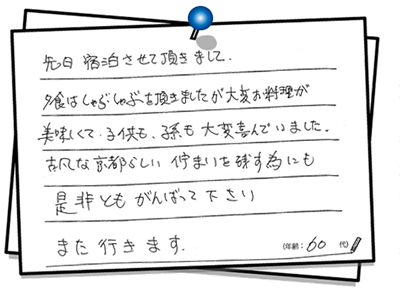 先日 宿泊させて頂きまして.
夕食はしゃぶしゃぶを頂きましたが大変お料理が
美味しくて.子供も.孫も大変喜んでいました.
古風な京都らしい佇まいを残す為にも
是非ともがんばって下さい
また行きます.
(年齢:60 代)